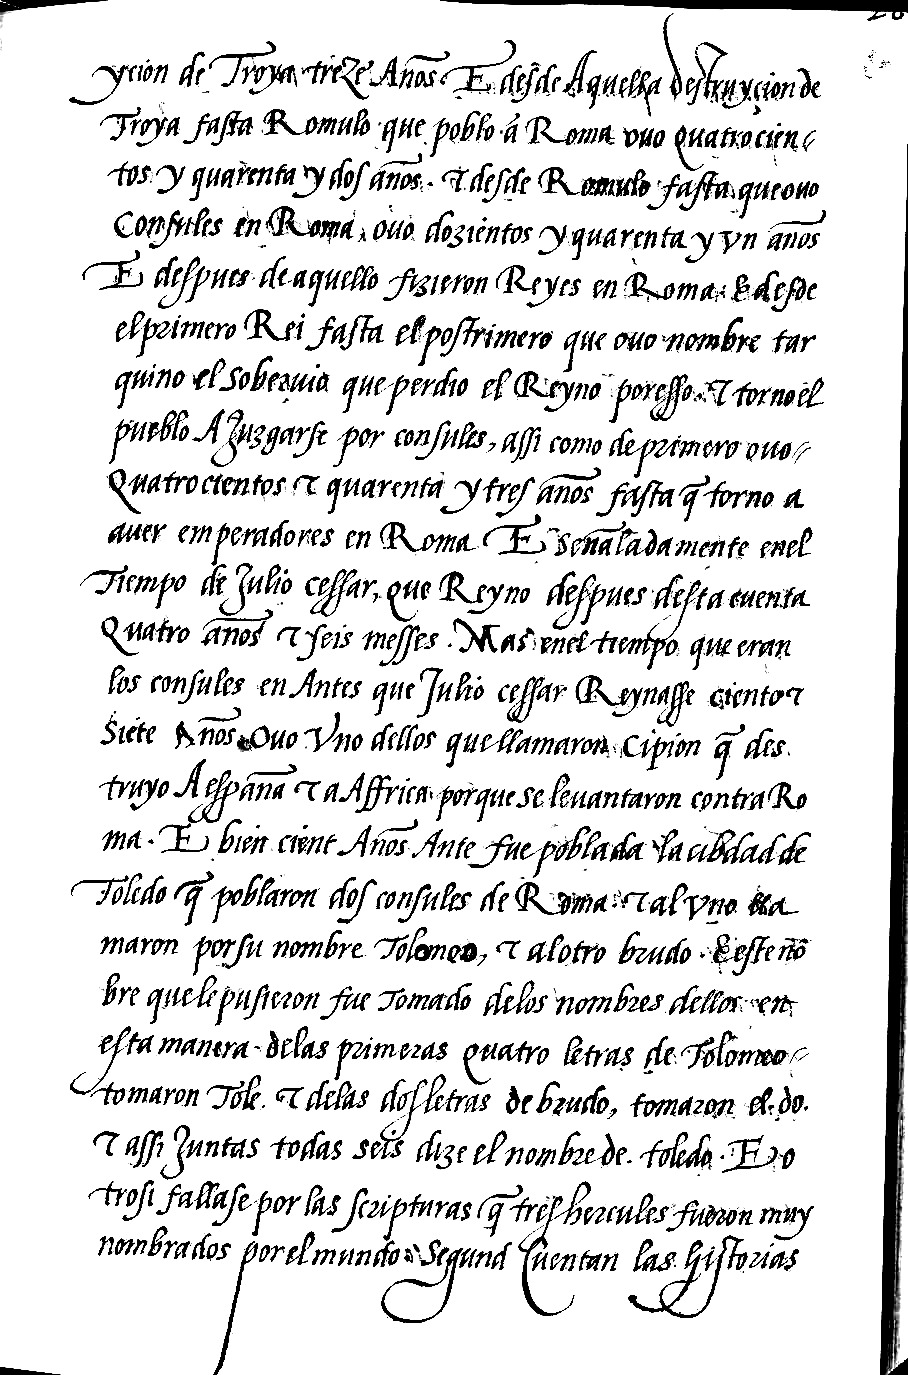 yçion de Troya treze Años. E desde Aquella destruyçion de
Troya fasta Romulo que poblo a Roma ovo quatroçien-
tos y quarenta y dos años. & desde Romulo fasta que ovo
Consules en Roma, ovo dozientos y quarenta y vn años
E despues de aquello fizieron Reyes en Roma. & desde
el primero Rei fasta el postrimero que ovo nombre tar
quino el sobervio que perdio el Reyno por esso. & torno el
pueblo A Juzgarse por consules, assi como de primero ovo-
Quatrocientos & quarenta y tres años fasta q̃ torno a
aver emperadores en Roma E señaladamente en el
Tiempo de Julio cessar, que Reyno despues desta cuenta
Quatro años & seis messes. Mas en el tiempo que eran
los consules en Antes que Julio cessar Reynasse ciento &
Siete Años Ovo Vno dellos que llamaron Cipion q̃ des
truyo A españa & a Affrica porque se levantaron contra Ro
ma. E bien cient Años Ante fue poblada la cibdad de
Toledo q̃ poblaron dos consules de Roma & al vno lla
maron por su nombre Tolomeo, & al otro brudo. & este nõ
bre que le pusieron fue Tomado de los nombres dellos en
esta manera. de las primeras quatro letras de Tolomeo-
tomaron Tole. & de las dos letras de brudo, tomaron el. do.
& assi Juntas todas seis dize el nombre de. toledo. E o
trosi fallase por las scripturas q̃ tres hercules fueron muy
nombrados por el mundo Segund Cuentan las historias